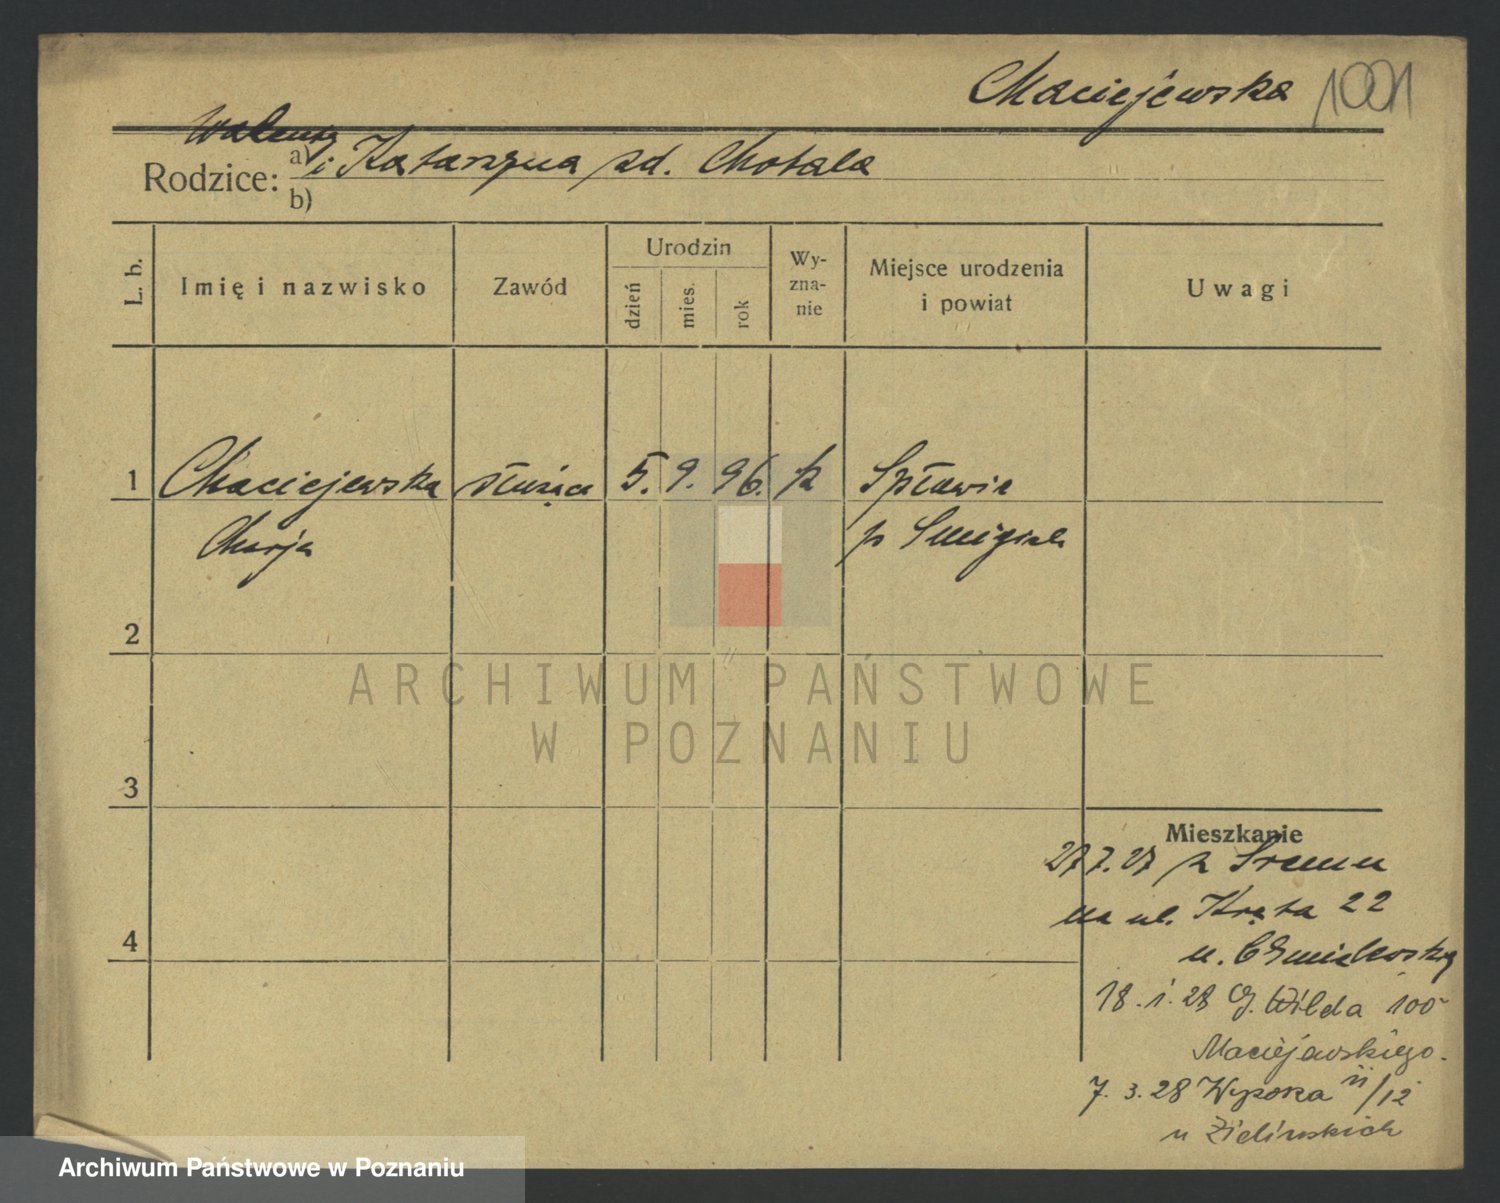 Maciejewska 1001
Walenty
Rodzice: a) i Katarzyna zd. Chotala
b)
L. b. Imię i nazwisko Zawód Urodzin dzień mies. rok Wy-zna-nie Miejsce urodzenia i powiat Uwagi
1 Maciejewska służąca 5. 9. 96. k Spławie
Marja p Smigiel
2
ARCHIWUM PAŃSTWOWE
W POZNANIU
3
Mieszkanie
27.7.27 z Sremu
4
na ul. Kręta 22
u. Chmielewsky
18. 1. 28 G. Wilda 100
Maciejewskiego.
7. 3. 28 Wysoka 11/12
u Zielinskich
Archiwum Państwowe w Poznaniu